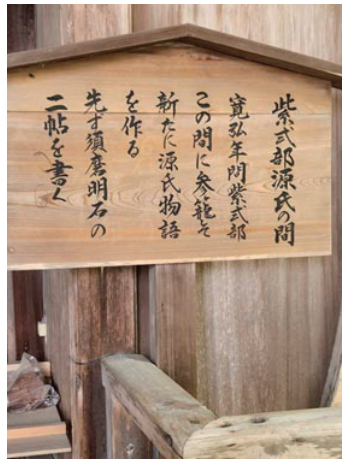 紫式部源氏の間
寛弘年間紫式部
この間に参籠そ
新たに源氏物語
を作る
先ず須磨明石の
二帖を書く